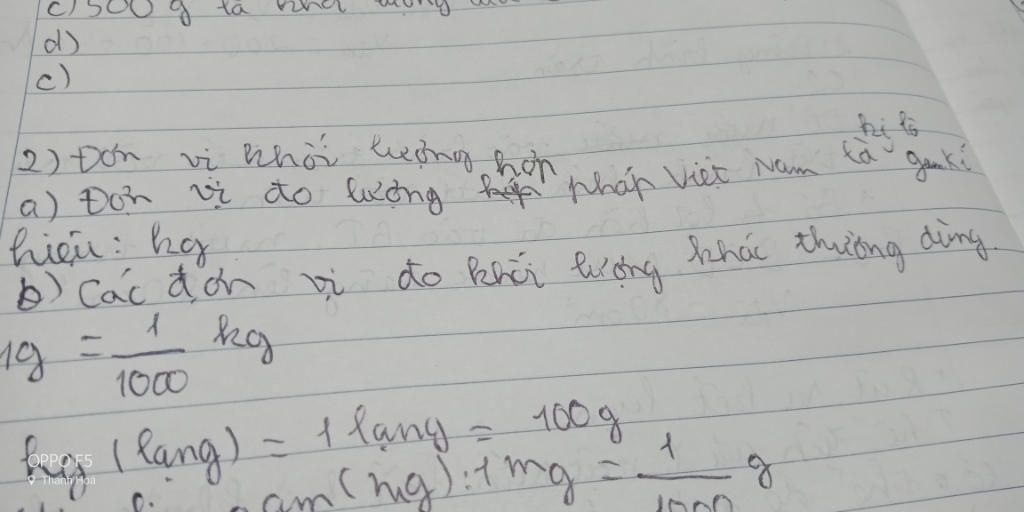 c) 500 g là khối lượng
d)
c)
2) Đơn vị khối lượng
a) Đơn vị đo lượng hợp pháp Việt Nam là ki lô gam kí
hiệu: kg
b) Các đơn vị đo khối lượng khác thường dùng.
1g = 1/1000 kg
hg (lạng) = 1 lạng = 100g
gam (mg): 1 mg = 1/1000 g
OPPO F5
Thanh Hoá